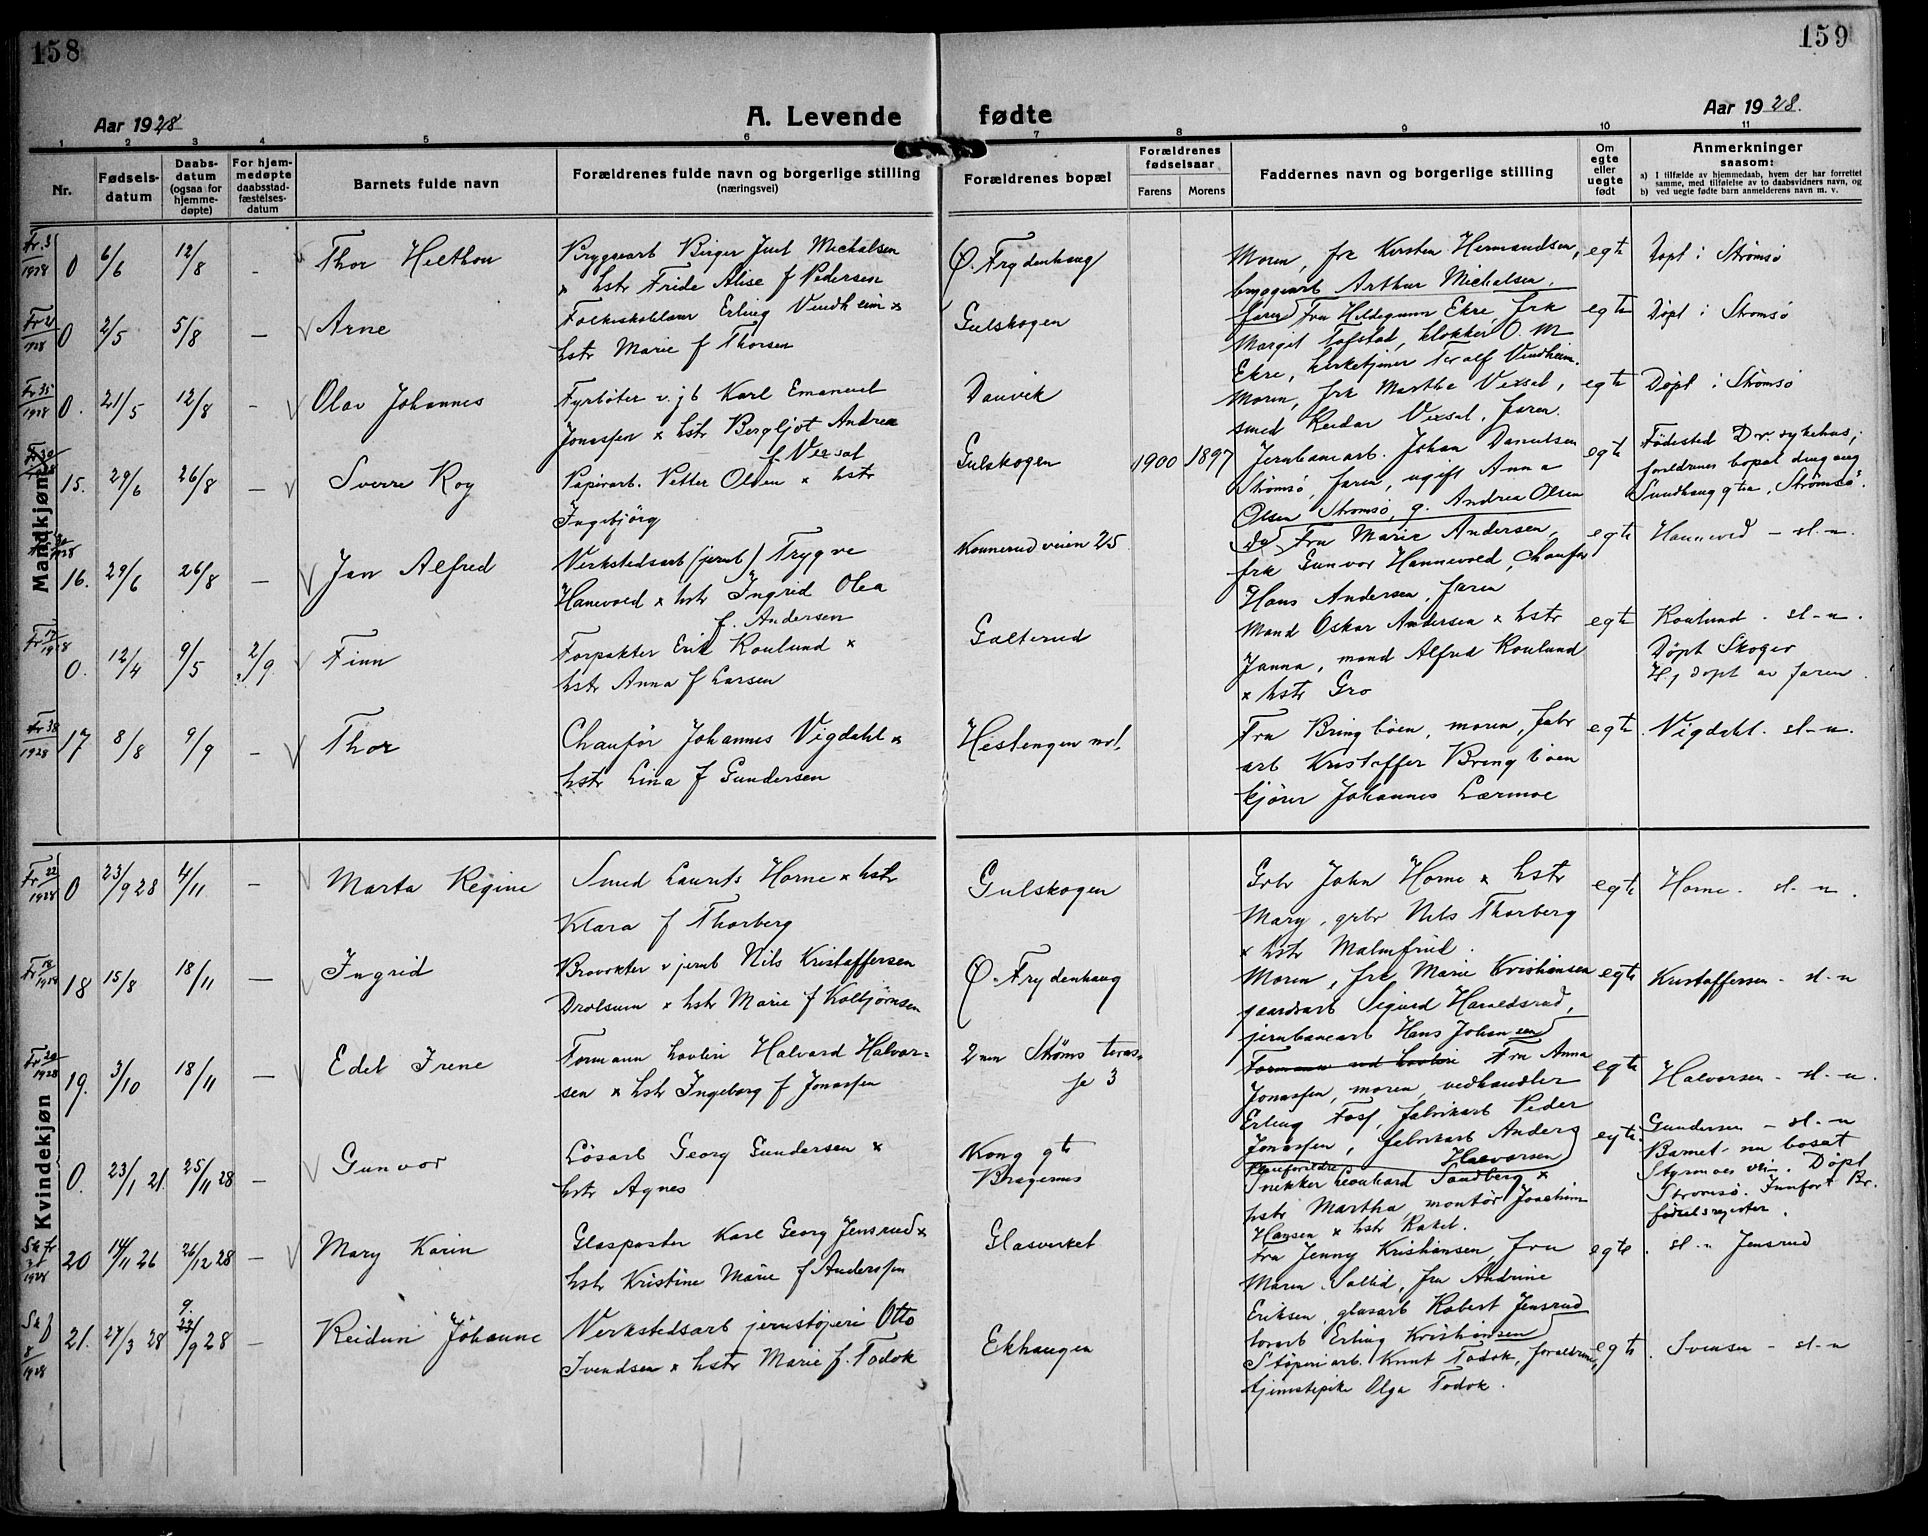 158
159
Aar 1928
A. Levende fødte
Aar 1928.
1 2 3 4 5 6 7 8 9 10 11
Nr.
Fødsels-
datum
Daabs-
datum
(ogsaa for
hjemme-
døpte)
For hjem-
medøpte
daabsstad-
fæstelses-
datum
Barnets fulde navn
Forældrenes fulde navn og borgerlige stilling
(næringsvei)
Forældrenes bopæl
Forældrenes
fødselsaar
Farens Morens
Faddernes navn og borgerlige stilling
Om
egte
eller
uegte
født
Anmerkninger
saasom:
a) I tilfælde av hjemmedaab, hvem der har forrettet
samme, med tilføielse av to daabsvidners navn, og
b) ved uegte fødte barn anmelderens navn m. v.
Mandkjøn
0 6/6 12/8 –
Thor Helthon
Bryggearb Birger Juul Michalsen
x hstr Fride Alise f Pedersen
Ø. Frydenhaug
Moren, frk Kirsten Hermandsen,
bryggearb Arthur Michalsen,
faren
egte
Døpt i Strømsø
0 2/5 5/8 –
Arne
Folkeskolelærer Erling Vindheim x
hstr Marie f Thorsen
Gulskogen
Fru Hildegunn Ekre, frk
Margit Tofstad, klokker O. M
Ekre, kirketjener Toralf Vindheim.
egte
Døpt i Strømsø
0. 21/5 12/8 –
Olav Johannes
Fyrbøter v. jb Karl Emanuel
Jonassen x hstr Bergljot Andrea
f Vexsal
Danvik
Moren, frk Martha Vexsal,
smed Reidar Vexsal, faren.
egte
Døpt i Strømsø
15. 29/6 26/8 –
Sverre Roy
Papirarb. Petter Olsen x hstr
Ingebjørg
Gulskogen
1900 1897
Jernbanearb. Johan Danielsen
Strømsø, faren, ugift Anna
Olsen Strømsø, g. Andrea Olsen
egte
Fødested Dr. sykehus;
foreldrenes bopæl dengang
Sundhauggtn, Strømsø
16. 29/6 26/8 –
Jan Alfred
Verkstedsarb (jernb) Trygve
Hanevold x hstr Ingrid Olea
f. Andersen
Konnerudveien 25
Fru Marie Andersen,
frk Gunvor Hannevold, Chaufør
Hans Andersen, faren
egte
Hannevold – sl. n.
0. 12/4 9/5 2/9
Finn
Forpakter Erik Roulund x
hstr Anna f Larsen
Galterud
Maad Oskar Andersen x hstr
Janna, mand Alfred Roulund
x hstr Gro
egte
Roulund – sl-n.
Døpt Skoger
Hj døpt av faren.
17 8/8 9/9 –
Thor
Chaufør Johannes Vigdahl x
hstr Lina f Gundersen
Hestengen
Fru Bringbøen, moren, fabr
arb Kristoffer Bringbøen
kjører Johannes Lærmoe
egte
Vigdahl. sl-n.
Kvindekjøn
0 23/9 28 4/11 –
Marta Regine
Smed Laurits Horne x hstr
Klara f Thorberg
Gulskogen
Grbr John Horne x hstr
Mary, grbr Nils Thorberg
x hstr Malmfrid.
egte
Horne – sl-n.
18 15/8 18/11 –
Ingrid
Brovokter v jernb Nils Kristoffersen
Drolsum x hstr Marie f Kolbjørnsen
Ø. Frydenhaug
Moren, frk Marie Kristiansen
gaardsarb Sigurd Haraldsrud,
jernbanearb Hans Johansen
egte
Kristoffersen – sl-n
19. 3/10 18/11 –
Edel Irene
Formann Halvard Halvor-
sen x hstr Ingeborg f Jonassen
Strøms teras-
se 3
Fru Anna
Jonassen, moren, vedhandler
Erling Foss, fabrikarb Peder
Jonassen, fabrikarb Anders
Halvorsen
egte
Halvorsen – sl-n.
0. 23/1 21 25/11 28
Gunvor
Løsarb Georg Gundersen x
hstr Agnes
Kong gtn
Bragernes
Snekker Leonhard Sandberg x
hstr Martha, montør Joachim
Hansen x hstr Rakel.
egte
Gundersen – sl-n
Barnet nu bosat
Døpt
Strømsø. Innført Br.
fødselsregister.
20 14/11 26 26/12 28 –
Mary Karin
Glaspaster Karl Georg Jensrud x
hstr Kristine Marie f Anderssen
Glasverket
Fru Jenny Kristiansen, fru
Maren Soltid, fru Andrine
Eriksen, glasarb Robert Jensrud
løsarb Erling Kristiansen
egte
sl. n Jensrud
21. 27/3 28 9/9 28 –
Reidun Johanne
Verkstedsarb jernstøperi Otto
Svendsen x hstr Marie f. Todok
Ekhaugen
Støperiarb. Knut Todok, foreldrene,
tjenestepike Olga Todok.
egte
Svensen – sl-n